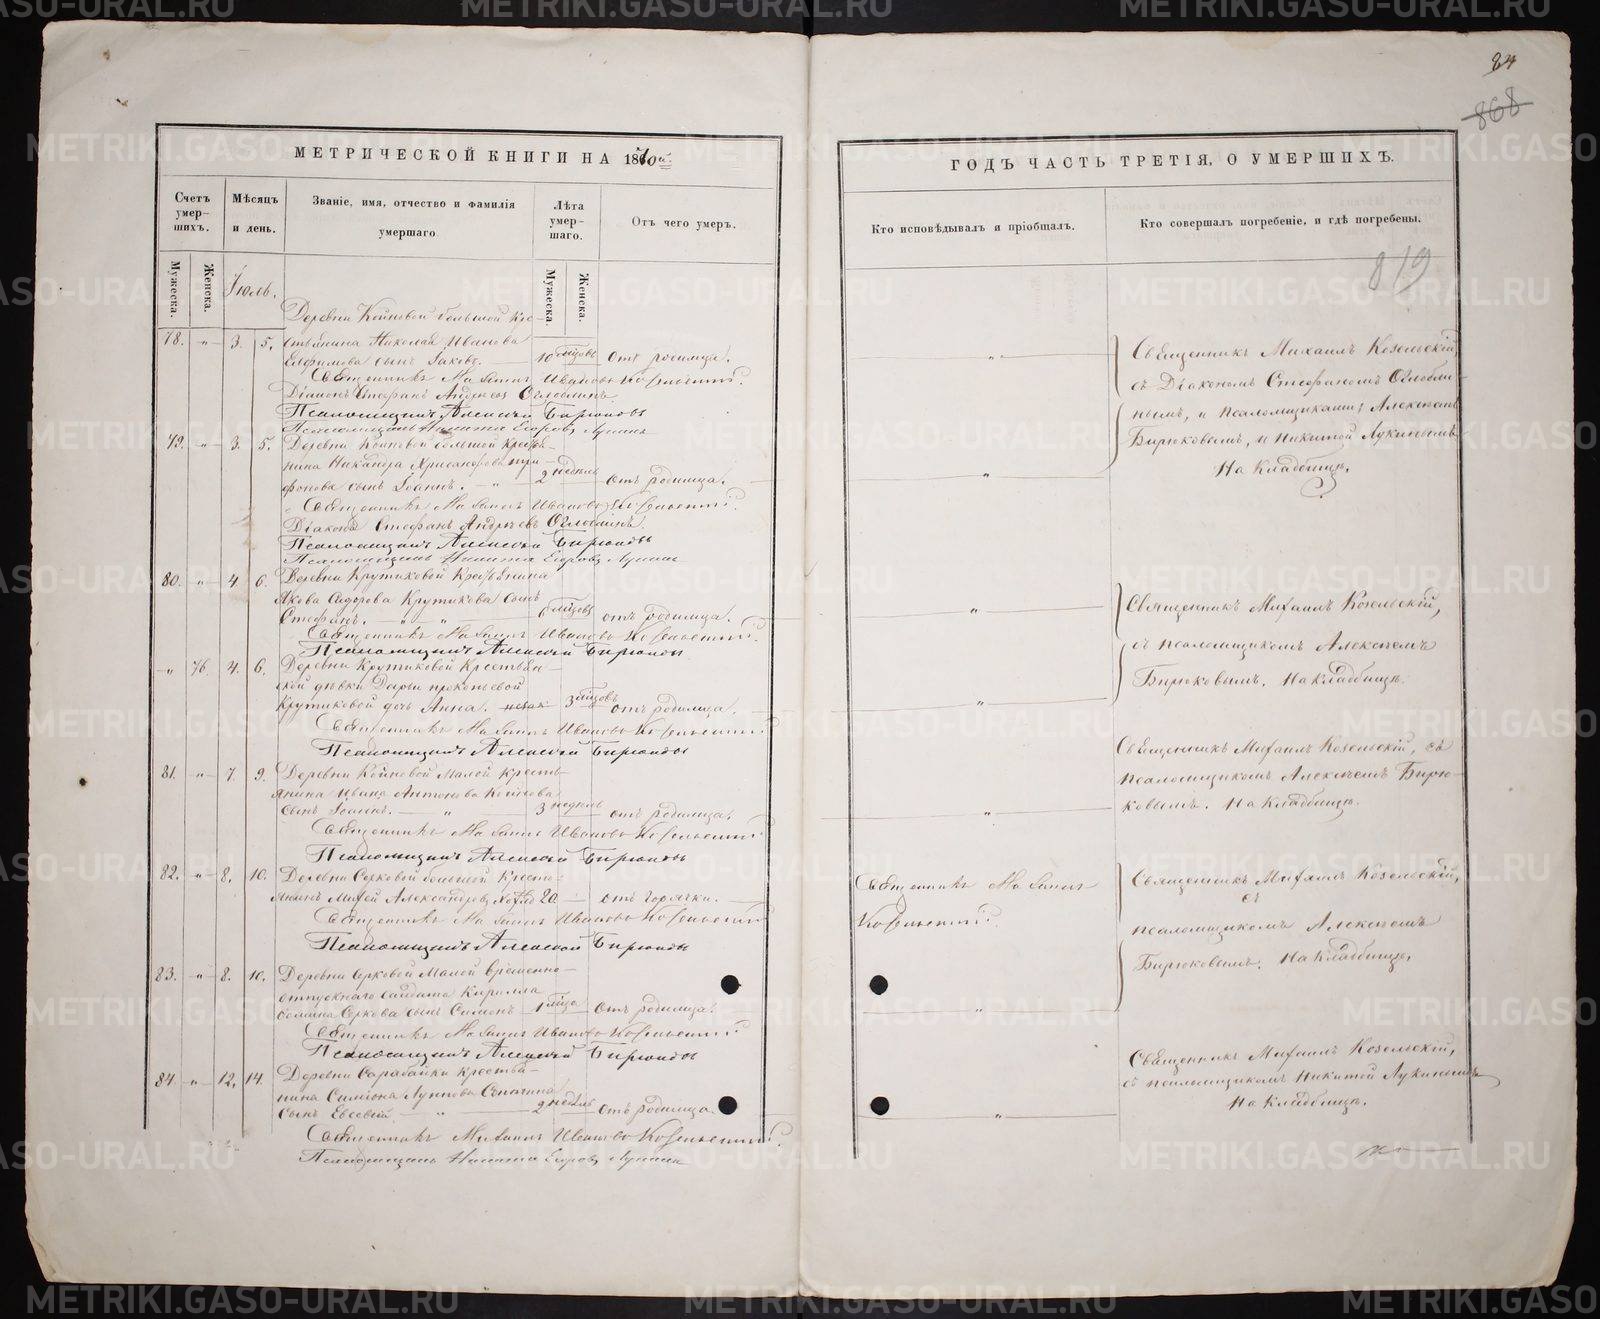 84
868
МЕТРИЧЕСКОЙ КНИГИ НА 1870й
ГОДЪ ЧАСТЬ ТРЕТІЯ, О УМЕРШИХЪ.
Счетъ умер-шихъ.
Мѣсяцъ и день.
Званіе, имя, отчество и фамилія умершаго
Лѣта умер-шаго.
Отъ чего умеръ.
Кто исповѣдывалъ и пріобщалъ.
Кто совершалъ погребеніе, и гдѣ погребены.
819
Мужеска.
Женска.
Іюль.
Мужеска.
Женска.
Деревни Койновой большой Кре-
78. „ 3. 5. стьянина Николая Иванова
Евфимова сынъ Іаковъ. 10 мцовъ отъ родимца.
Священникъ Михаилъ Ивановъ Козельскій.
Діаконъ Стефанъ Андреевъ Оглоблинъ.
Псаломщикъ Алексѣй Бирюковъ
Псаломщикъ Никита Егоровъ Лукинъ
Священникъ Михаилъ Козельскій,
съ Діакономъ Стефаномъ Оглобли-
нымъ, и псаломщиками; Алексѣемъ
Бирюковымъ, и Никитой Лукинымъ
На кладбищѣ.
79. „ 3. 5. Деревни Койновой большой Крестья-
нина Никандра Хрисанфова три-
фонова сынъ Іоаннъ. 2 недѣль отъ родимца.
Священникъ Михаилъ Ивановъ Козельскій.
Діаконъ Стефанъ Андреевъ Оглоблинъ.
Псаломщикъ Алексѣй Бирюковъ
Псаломщикъ Никита Егоровъ Лукинъ
80. „ 4. 6. Деревни Крутиковой Крестьянина
Якова Сидорова Крутикова сынъ
Стефанъ. 6 мцовъ отъ родимца.
Священникъ Михаилъ Ивановъ Козельскій.
Псаломщикъ Алексѣй Бирюковъ
Священникъ Михаилъ Козельскій,
съ псаломщикомъ Алексѣемъ
Бирюковымъ. На кладбищѣ.
„ 76. 4. 6. Деревни Крутиковой Крестьян-
ской дѣвки Дарьи прокопьевой
Крутиковой дочь Анна. 3 мцовъ отъ родимца.
Священникъ Михаилъ Ивановъ Козельскій
Псаломщикъ Алексѣй Бирюковъ
81. „ 7. 9. Деревни Койновой Малой Кресть-
янина Ивана Антонова Койнова
сынъ Іоаннъ. 3 недѣль отъ родимца.
Священникъ Михаилъ Ивановъ Козельскій
Псаломщикъ Алексѣй Бирюковъ
Священникъ Михаилъ Козельскій, съ
псаломщикомъ Алексѣемъ Бирю-
ковымъ. На кладбищѣ.
82. „ 8. 10. Деревни Серковой большой Кресть-
янинъ Александровъ 20 отъ горячки.
Священникъ Михаилъ Ивановъ Козельскій
Псаломщикъ Алексѣй Бирюковъ
Священникъ Михаилъ
Козельскій.
Священникъ Михаилъ Козельскій,
съ
псаломщикомъ Алексѣемъ
Бирюковымъ. На кладбищѣ.
83. „ 8. 10. Деревни Серковой Малой временно-
отпускнаго солдата Кирилла
Серкова сынъ Симеонъ 1 мца отъ родимца.
Священникъ Михаилъ Ивановъ Козельскій
Псаломщикъ Алексѣй Бирюковъ
84. „ 12. 14. Деревни Сарабайки крестья-
нина Симіона
сынъ Евсевій 2 недѣль отъ родимца.
Священникъ Михаилъ Ивановъ Козельскій.
Псаломщикъ Никита Егоровъ Лукинъ
Священникъ Михаилъ Козельскій,
съ псаломщикомъ Никитой Лукинымъ
На кладбищѣ.
METRIKI.GASO-URAL.RU